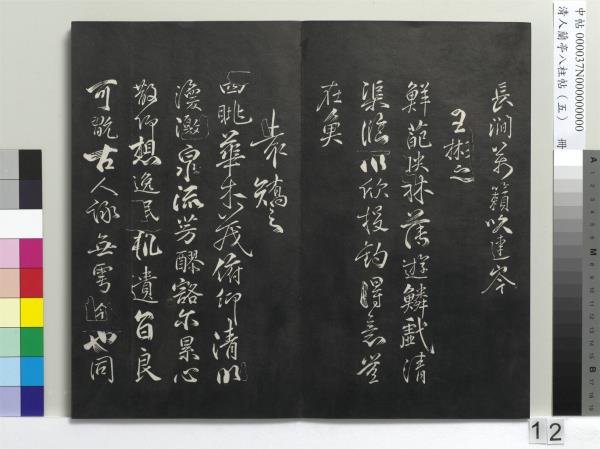 中帖 000037N000000000
清人蘭亭八柱帖（五） 冊
長澗萬籟吹連峯
王彬之
鮮葩映林薄游鱗戲清
渠臨川欣投釣得意豈
在魚
袁嶠之
四眺華木茂俯仰清川
渙激泉流芳醪豁尓累心
散仰想逸民軌遺音良
可翫古人詠無雩今也同
12